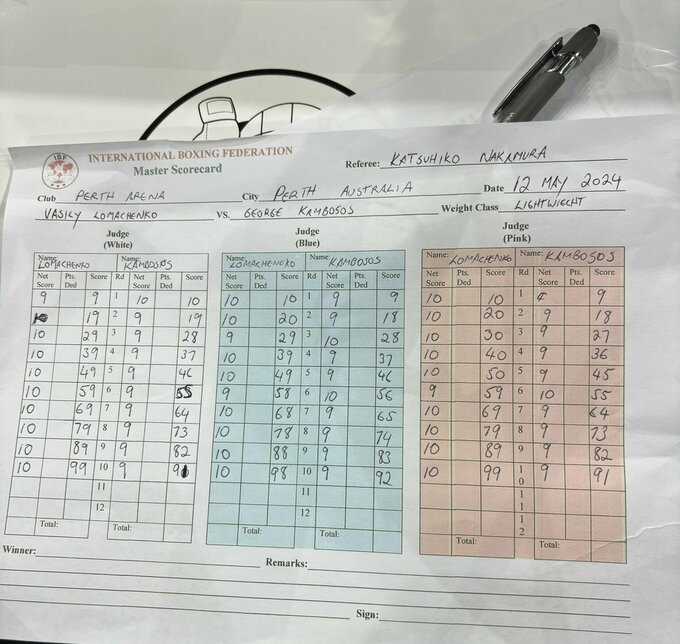 IBF
INTERNATIONAL BOXING FEDERATION
Master Scorecard
Referee: KATSUHIKO NAKAMURA
Club PERTH ARENA City PERTH AUSTRALIA Date 12 MAY 2024
VASILY LOMACHENKO VS. GEORGE KAMBOSOS Weight Class LIGHTWIEGHT
Judge (White) Judge (Blue) Judge (Pink)
Name: LOMACHENKO Name: KAMBOSOS Name: LOMACHENCKO Name: KAMBOSOS Name: LOMACHENKO Name: KAMBOSOS
Net Score Pts. Ded Score Rd Net Score Pts. Ded Score Net Score Pts. Ded Score Rd Net Score Pts. Ded Score Net Score Pts. Ded Score Rd Net Score Pts. Ded Score
9 9 1 10 10 10 10 1 9 9 10 10 1 9 9
10 19 2 9 19 10 20 2 9 18 10 20 2 9 18
10 29 3 9 28 9 29 3 10 28 10 30 3 9 27
10 39 4 9 37 10 39 4 9 37 10 40 4 9 36
10 49 5 9 46 10 49 5 9 46 10 50 5 9 45
10 59 6 9 55 9 58 6 10 56 9 59 6 10 55
10 69 7 9 64 10 68 7 9 65 10 69 7 9 64
10 79 8 9 73 10 78 8 9 74 10 79 8 9 73
10 89 9 9 82 10 88 9 9 83 10 89 9 9 82
10 99 10 9 91 10 98 10 9 92 10 99 10 9 91
11 11 11
12 12 12
Total: Total: Total: Total: Total: Total:
Winner: Remarks:
Sign: